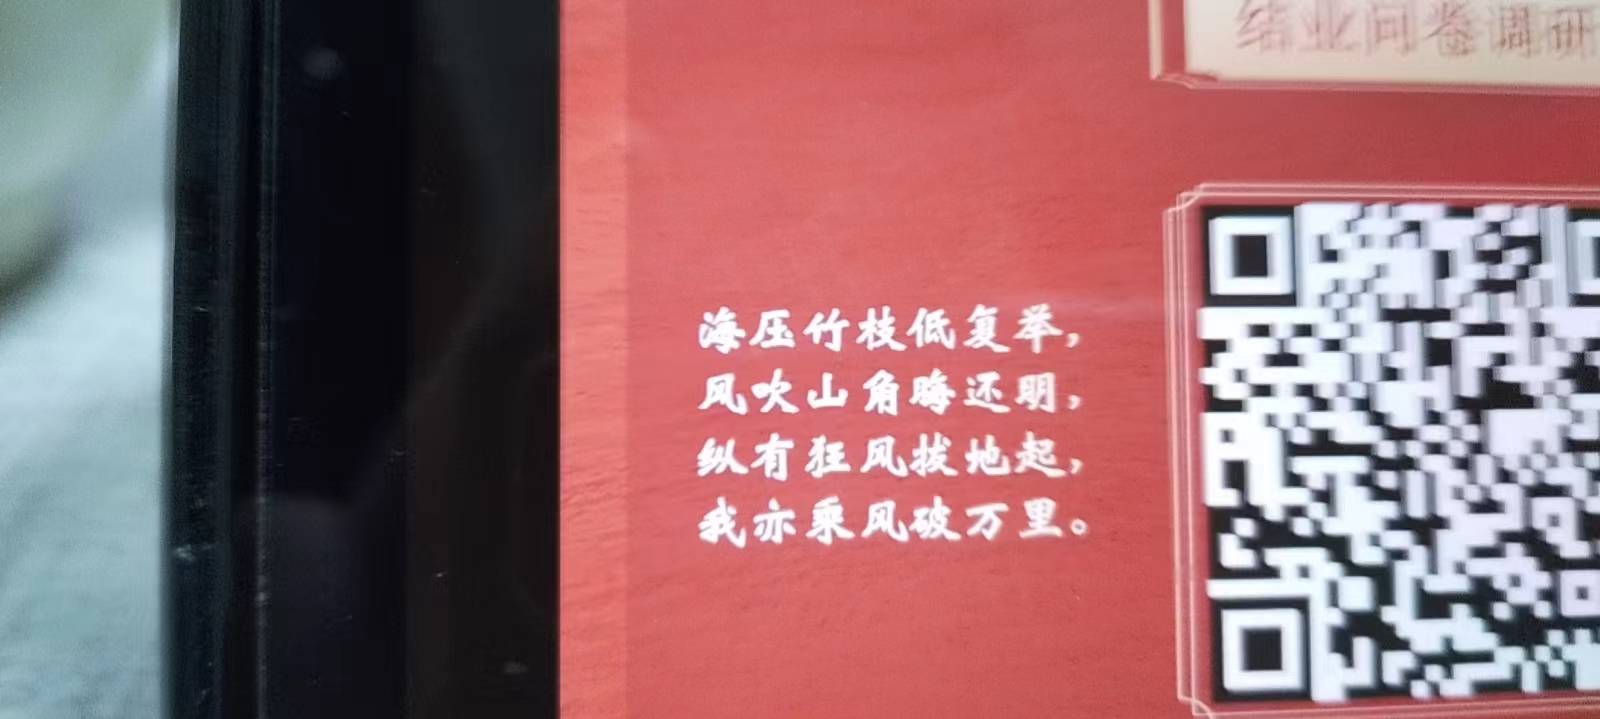 结业问卷调研
海压竹枝低复举，
风吹山角晦还明，
纵有狂风拔地起，
我亦乘风破万里。